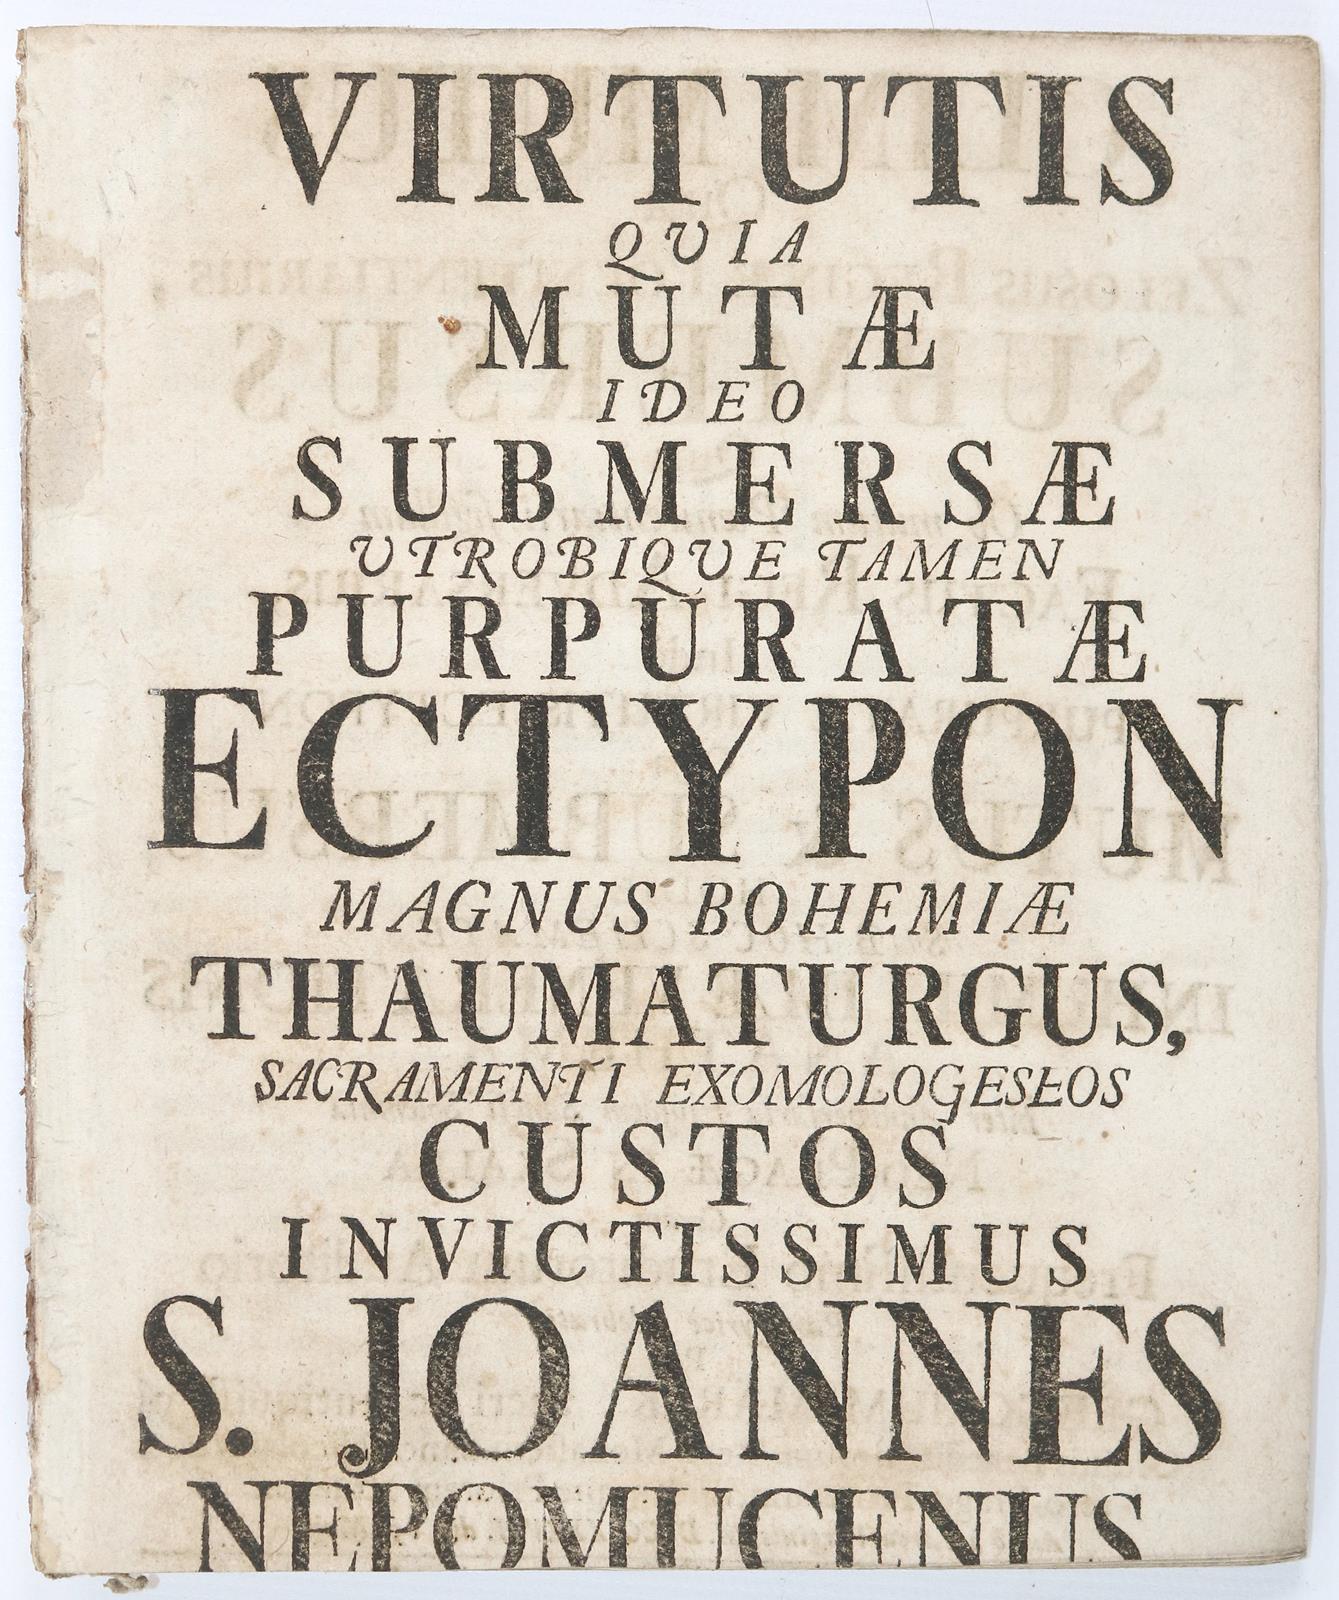 VIRTUTIS
QVIA
MUTÆ
IDEO
SUBMERSÆ
VTROBIQVE TAMEN
PURPURATÆ
ECTYPON
MAGNUS BOHEMIÆ
THAUMATURGUS,
SACRAMENTI EXOMOLOGESEOS
CUSTOS
INVICTISSIMUS
S. JOANNES
NEPOMUCENUS